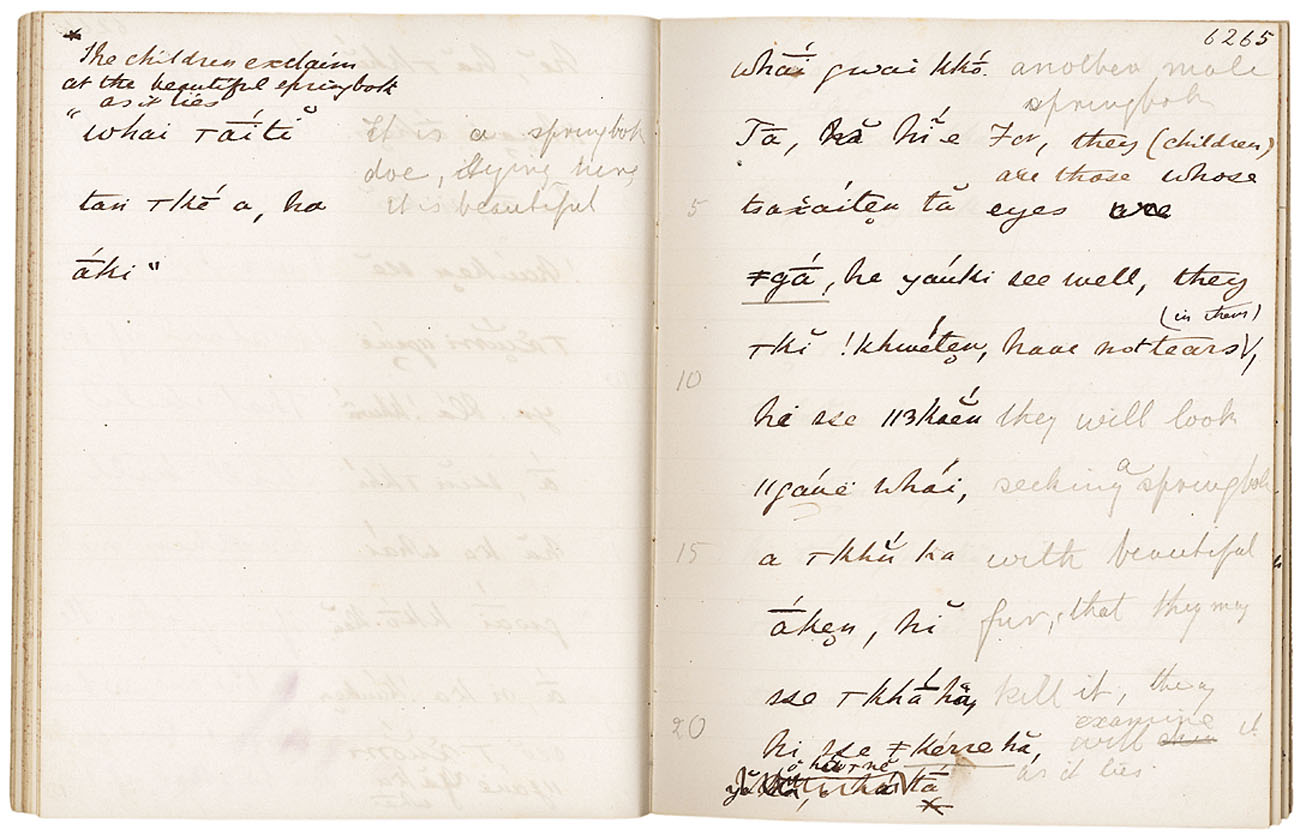 The children exclaim
at the beautiful springbok
as it lies
"whai ⊤ā́ĭtĭ It is a springbok
doe, lying here,
tan ⊤ké a, ha it is beautiful
ā́ki"
6265
whā́i gwai kkó. another male
springbok
Tā, hĭ e For, they (children)
are those whose
5 tsaxáitẹn tă eyes are
≠gā́, he yáuki see well, they
(in them)
⊤kĭ !khwéiten, have not tears,
10
hi sse ǁkoĕn they will look
ǁgáuë whái, seeking a springbok
15 a ⊤khŭ́ ka with beautiful
ā́kẹn, hĭ fur, that they may
sse ⊤khā́ hă, kill it, they
examine
20 hi sse ≠kérre hă, will it
as it lies